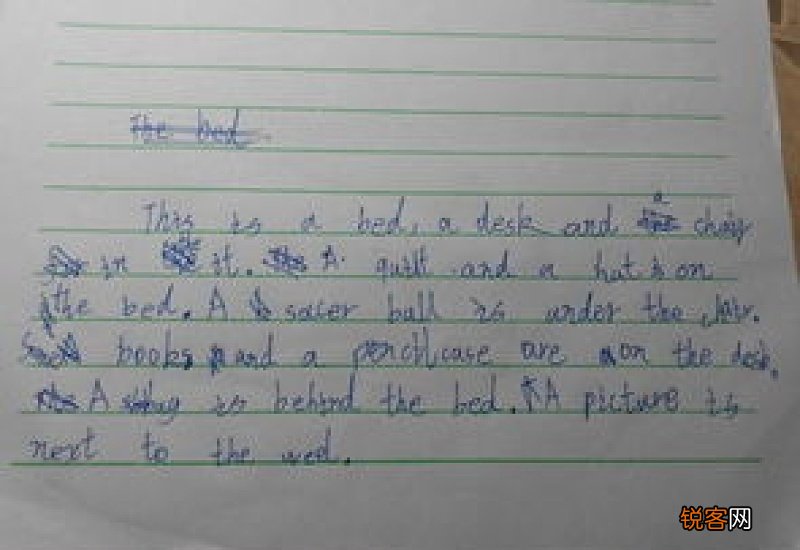 The bed.
This is a bed, a desk and a chair
in it. A quilt and a hat is on
the bed. A sacer ball is under the chair.
books and a pencil case are on the desk.
A bag is behind the bed. A picture is
next to the wed.
锐客网